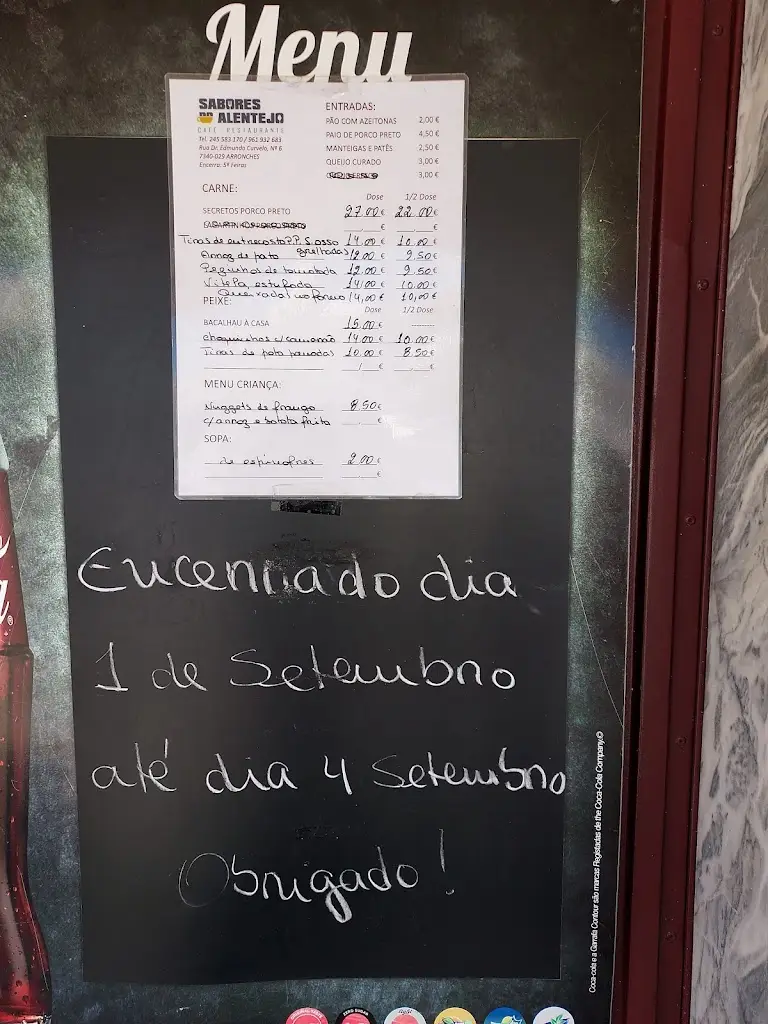 Menu
SABORES
DO ALENTEJO
CAFÉ RESTAURANTE
Tel. 245 583 170 / 961 932 683
Rua Dr. Edmundo Curvelo, Nº 6
7340-029 ARRONCHES
Encerra: 5ª Feiras
ENTRADAS:
PÃO COM AZEITONAS 2,00 €
PAIO DE PORCO PRETO 4,50 €
MANTEIGAS E PATÊS 2,50 €
QUEIJO CURADO 3,00 €
3,00 €
CARNE:
Dose 1/2 Dose
SECRETOS PORCO PRETO 27.00 € 22.00 €
€ €
Tiras de entrecosto P.P. S. osso grelhadas 14.00 € 10.00 €
Arroz de pato 12.00 € 9.50 €
Peguinhos de tomatada 12.00 € 9.50 €
Vitela estufada 14,00 € 10.00 €
no forno 14,00 € 10,00 €
PEIXE:
Dose 1/2 Dose
BACALHAU À CASA 15.00 € --------
Choquinhos c/ camarão 14.00 € 10.00 €
Tiras de pota panadas 10.00 € 8.50 €
€ €
MENU CRIANÇA:
Nuggets de frango 8.50 €
c/ arroz e batata frita €
SOPA:
de espinafres 2.00 €
€
Encerrado dia
1 de Setembro
até dia 4 Setembro
Obrigado!
Coca-cola e a Garrafa Contour são marcas Registadas de the Coca-Cola Company.©
ZERO SUGAR